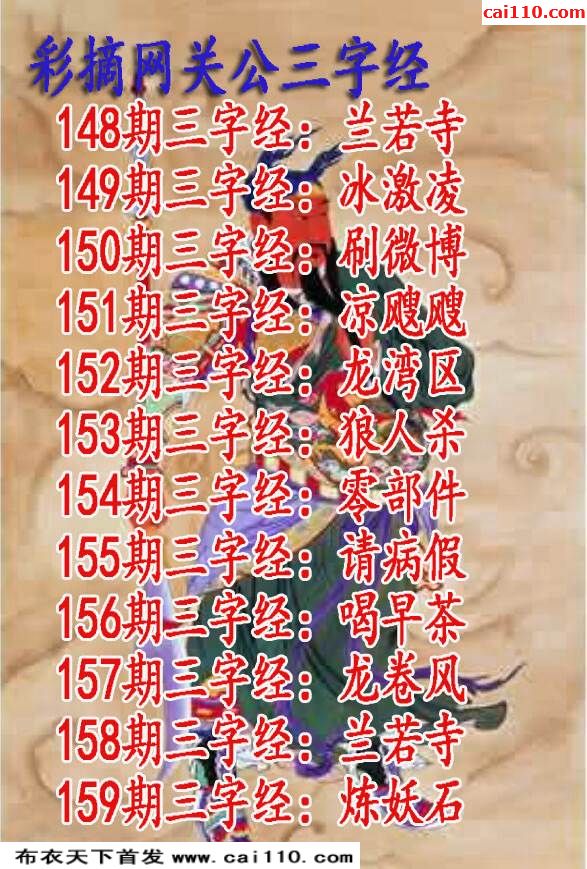 cai110.com
彩摘网关公三字经
148期三字经：兰若寺
149期三字经：冰激凌
150期三字经：刷微博
151期三字经：凉飕飕
152期三字经：龙湾区
153期三字经：狼人杀
154期三字经：零部件
155期三字经：请病假
156期三字经：喝早茶
157期三字经：龙卷风
158期三字经：兰若寺
159期三字经：炼妖石
布衣天下首发 www.cai110.com